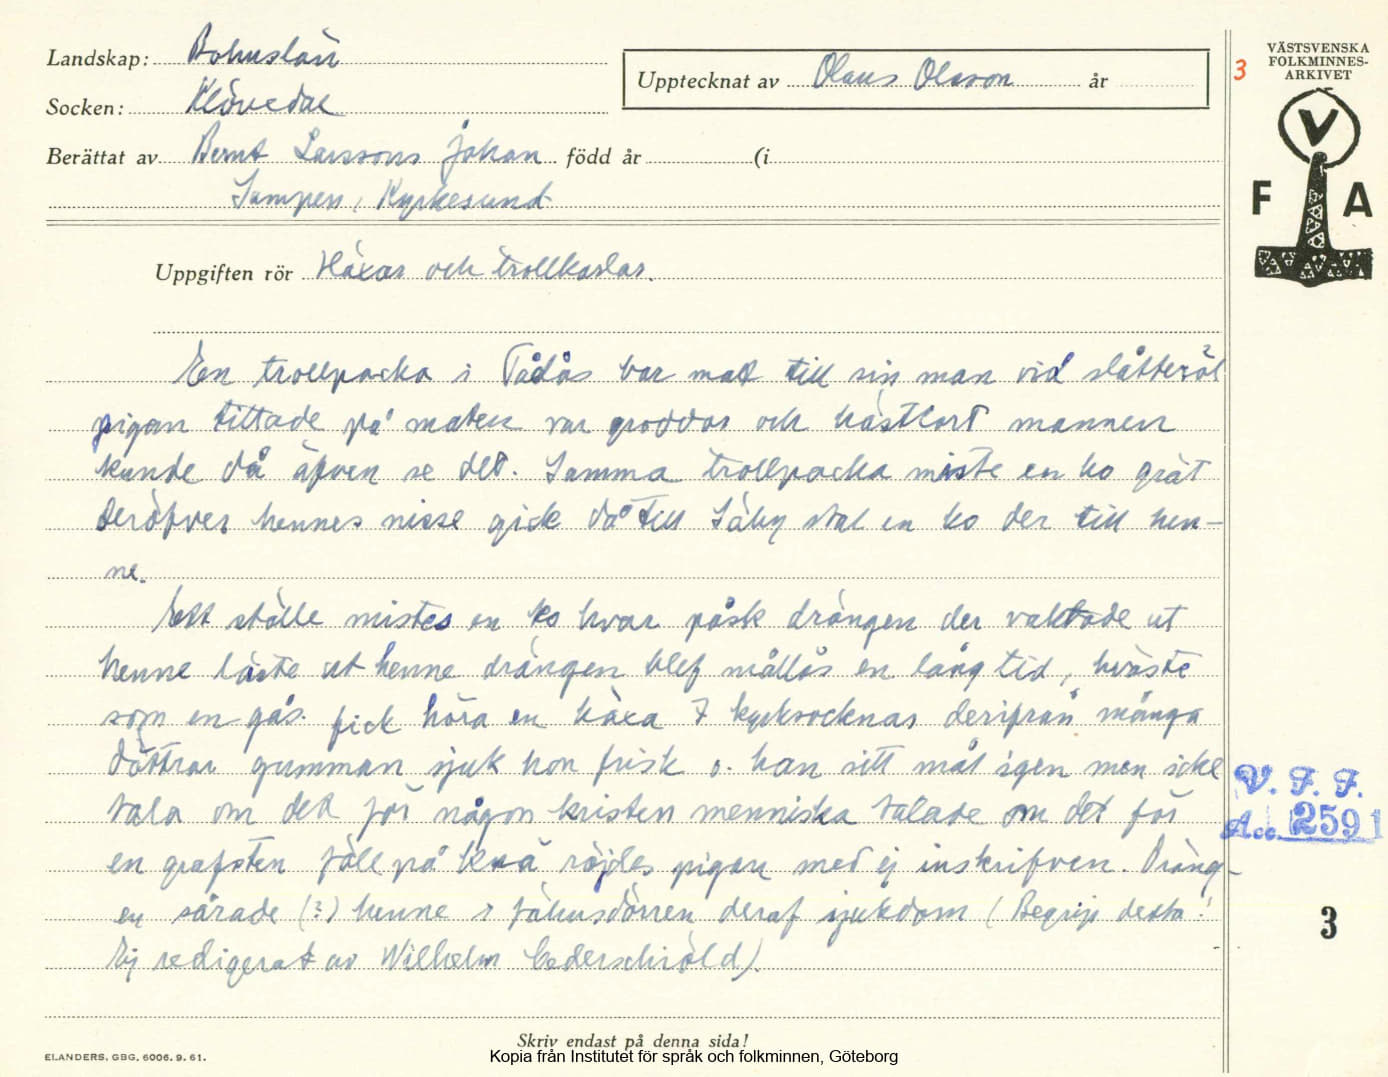 Landskap: Bohuslän
Socken: Klövedal
Berättat av Bernt Larssons Johan född år (i
Sumpen, Kyrkesund
Upptecknat av Olaus Olsson år
3
VÄSTSVENSKA
FOLKMINNES-
ARKIVET
V
F A
Uppgiften rör Häxor och trollkarlar.
En trollpacka i Tådås bar mat till sin man vid slåtteröl
pigan tittade på maten var groddor och hästlort mannen
kunde då äfven se det. Samma trollpacka miste en ko grät
deröfver hennes nisse gick då till Säby stal en ko der till hen-
ne.
Ett ställe mistes en ko hvar påsk drängen der vaktade ut
henne läste ut henne drängen blef mållös en lång tid, hväste
som en gås. fick höra en häxa 7 kyrksocknar derifrån många
döttrar gumman sjuk hon frisk o. han sitt mål igen men icke
tala om det för någon kristen menniska talade om det för
en grafsten föll på knä röjdes pigan med ej inskrifven. Dräng-
en sårade (?) henne i fähusdörren deraf sjukdom (Begrip detta!
Ej redigerat av Wilhelm Cederschiöld).
V. F. F.
Acc. 2591
3
Skriv endast på denna sida!
ELANDERS, GBG, 6006. 9. 61.
Kopia från Institutet för språk och folkminnen, Göteborg